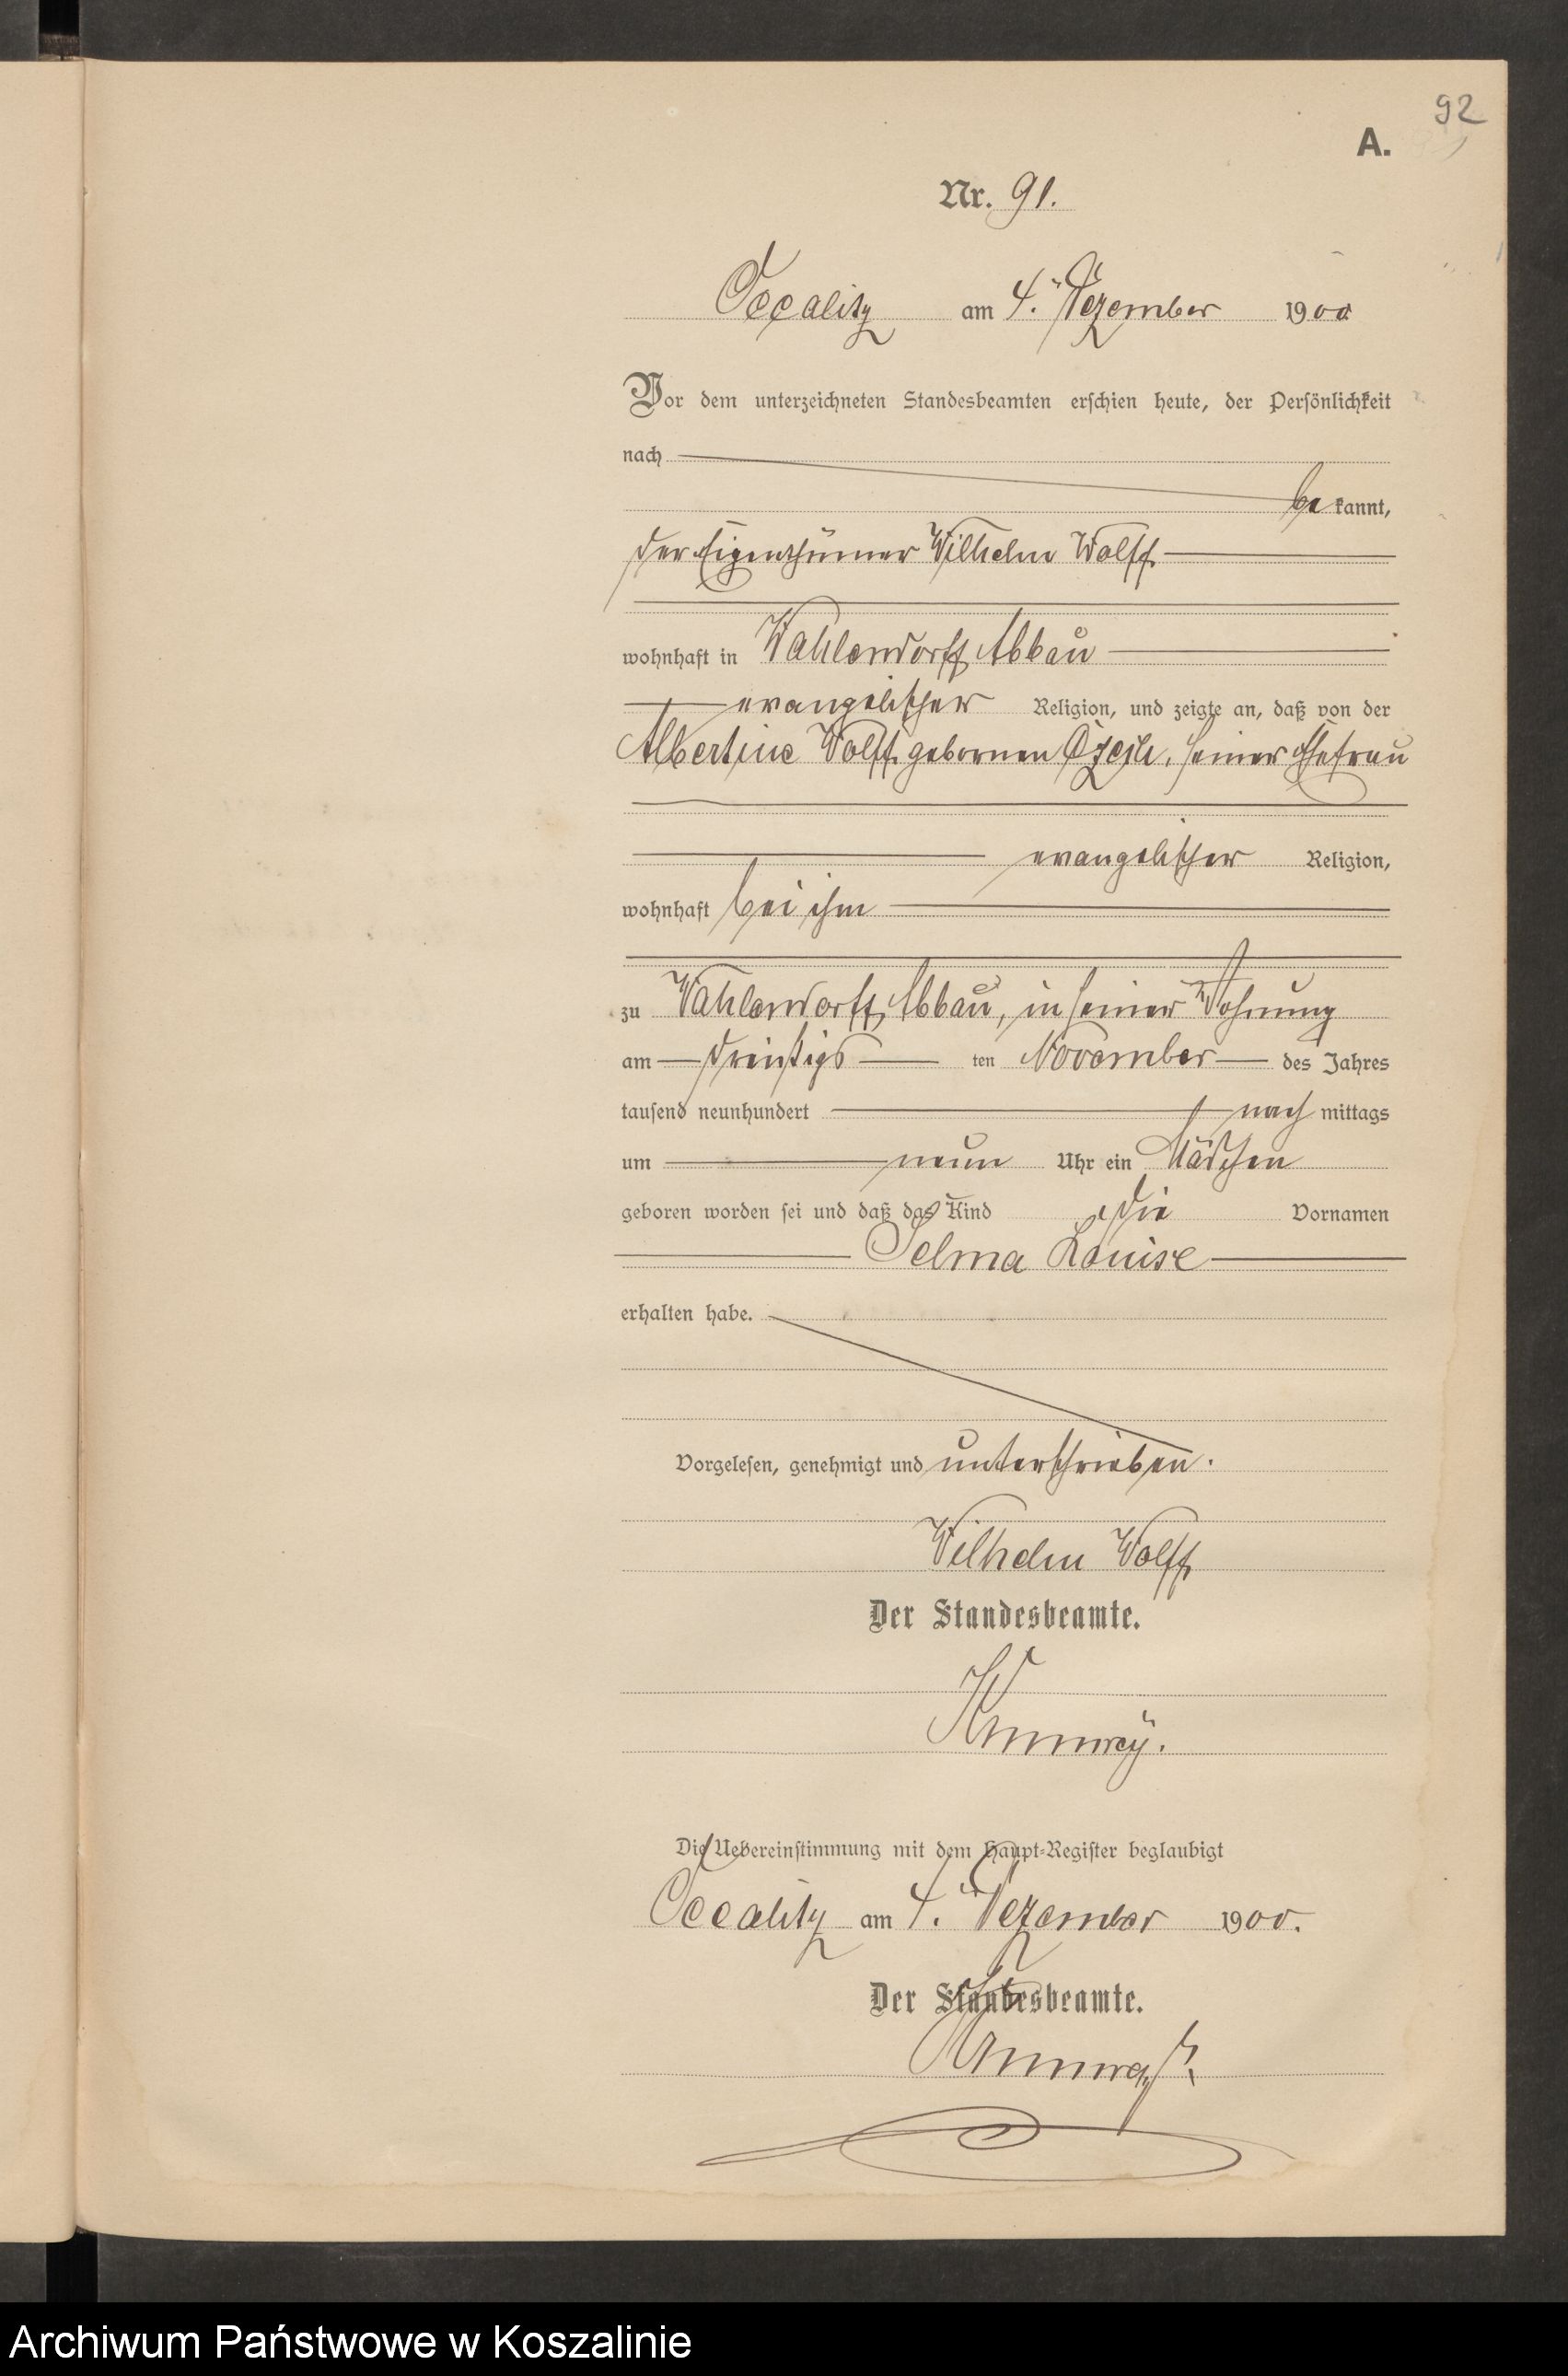 92
A.
Nr. 91.
Occalitz am 4. Dezember 1900
Vor dem unterzeichneten Standesbeamten erschien heute, der Persönlichkeit
nach
be kannt,
der Eigenthümer Wilhelm Wolff
wohnhaft in Wahlendorff, Abbau
evangelischer Religion, und zeigte an, daß von der
Albertine Wolff gebornen, seiner Ehefrau
evangelischer Religion,
wohnhaft bei ihm
zu Wahlendorff, Abbau, in seiner Wohnung
am dreißigs ten November des Jahres
tausend neunhundert nach mittags
um neun Uhr ein Mädchen
geboren worden sei und daß das Kind die Vornamen
Selma Louise
erhalten habe.
Vorgelesen, genehmigt und unterschrieben.
Wilhelm Wolff
Der Standesbeamte.
Die Uebereinstimmung mit dem Haupt-Register beglaubigt
Occalitz am 4. Dezember 1900.
Der Standesbeamte.
Archiwum Państwowe w Koszalinie